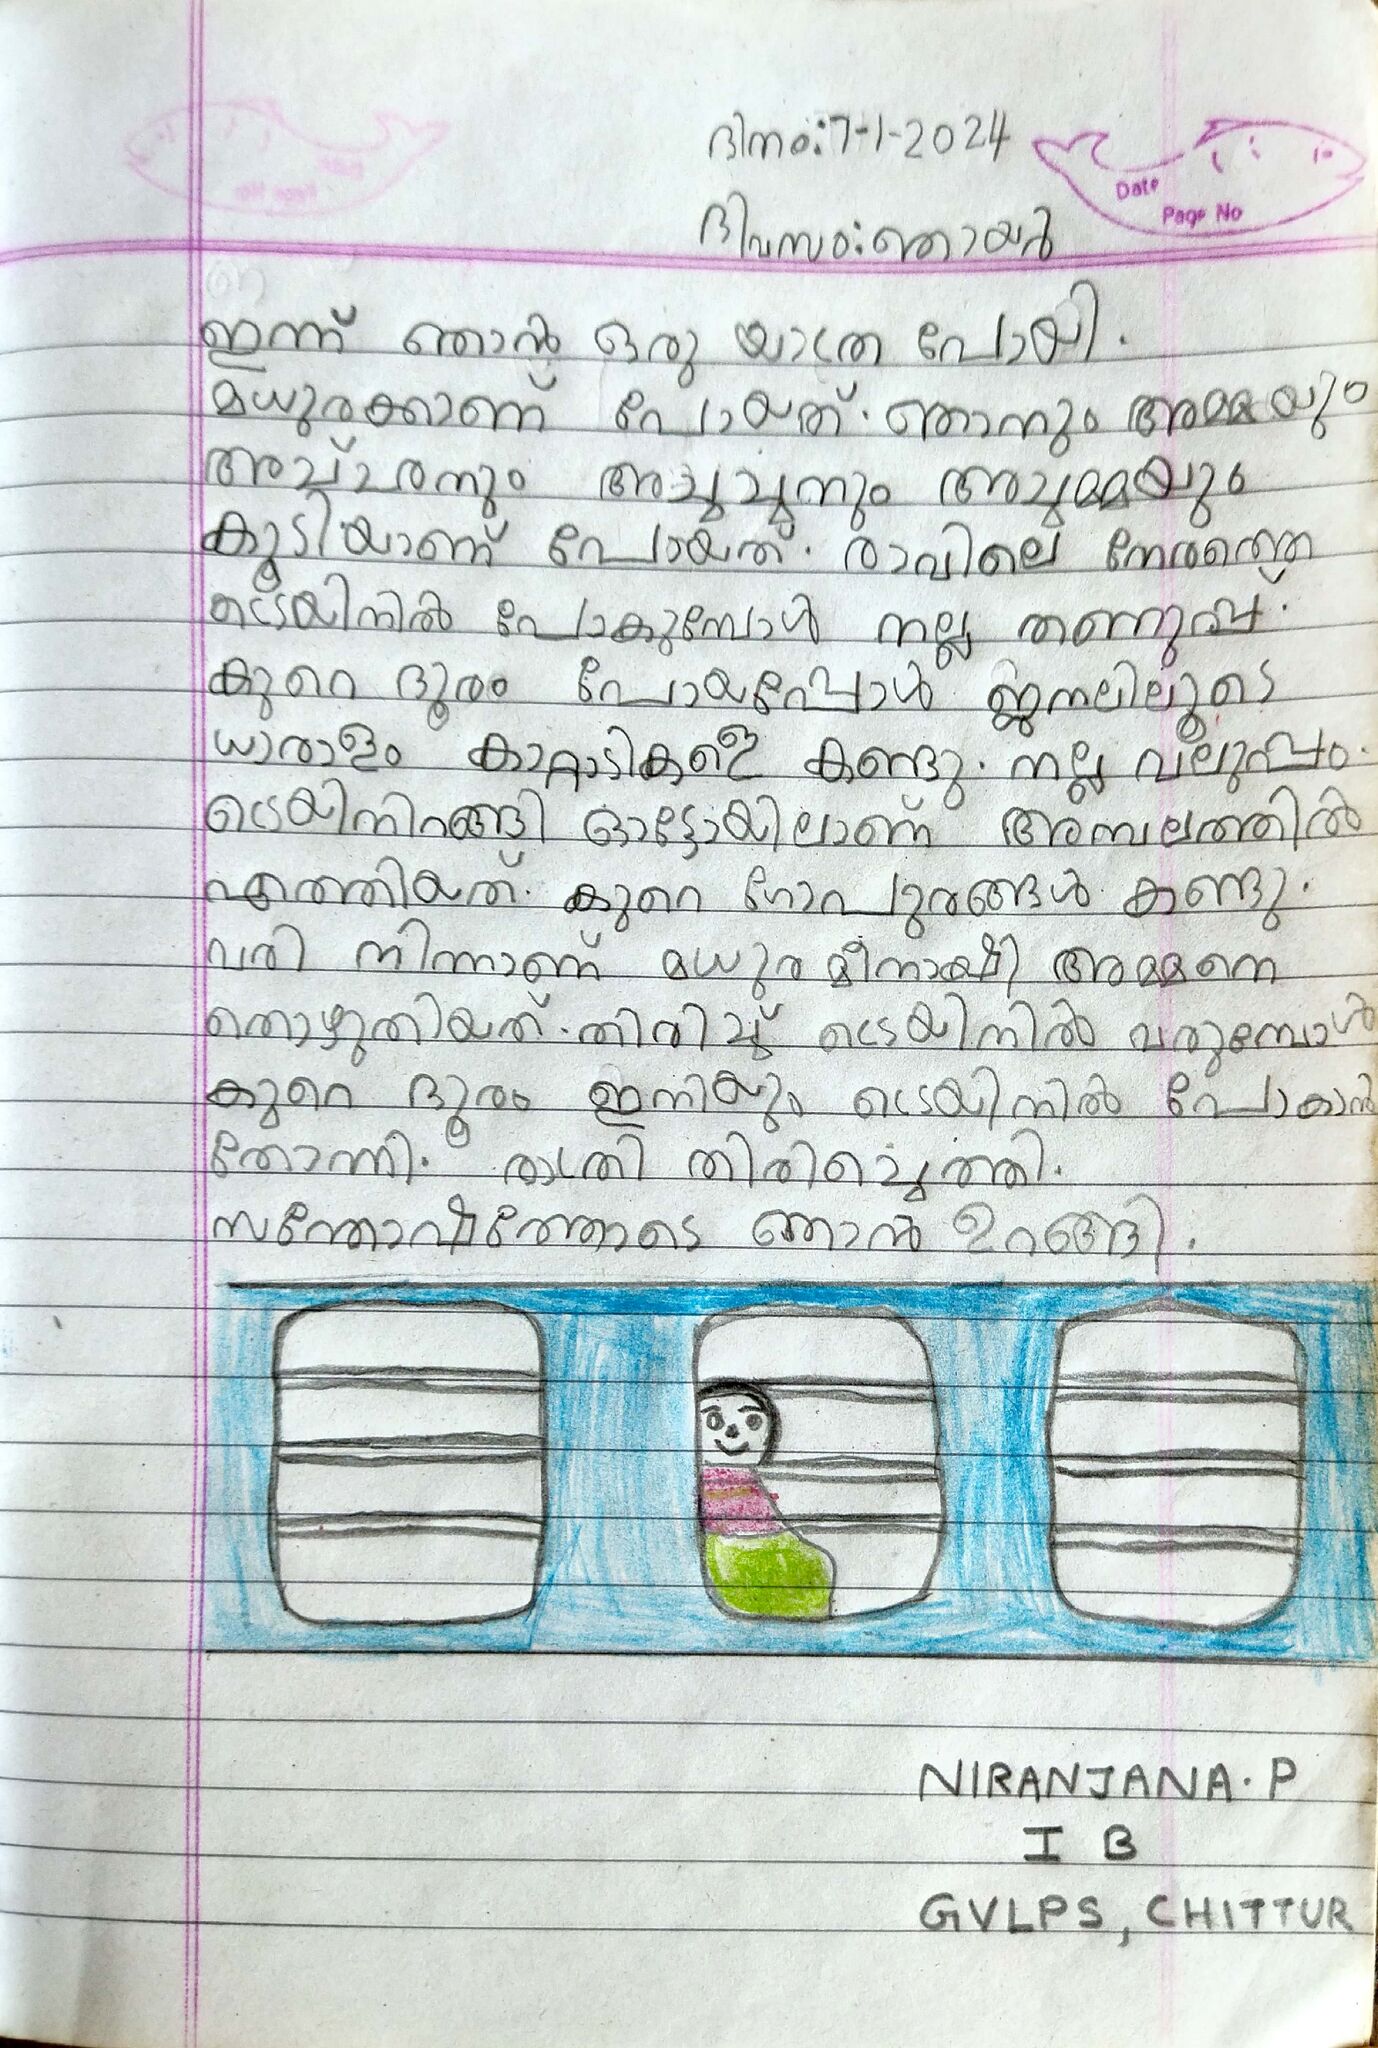 ദിനം:7-1-2024
Date
Page No
ദിവസം:ഞായർ
ഇന്ന് ഞാൻ ഒരു യാത്ര പോയി.
മധുരക്കാണ് പോയത്. ഞാനും അമ്മയും
അച്ഛനും അച്ചച്ചനും അച്ചമ്മയും
കൂടിയാണ് പോയത്. രാവിലെ നേരത്തെ
ട്രെയിനിൽ പോകുമ്പോൾ നല്ല തണുപ്പ്.
കുറെ ദൂരം പോയപ്പോൾ ജനലിലൂടെ
ധാരാളം കാറ്റാടികളെ കണ്ടു. നല്ല വലുപ്പം.
ട്രെയിനിറങ്ങി ഓട്ടോയിലാണ് അമ്പലത്തിൽ
എത്തിയത്. കുറെ ഗോപുരങ്ങൾ കണ്ടു.
വരി നിന്നാണ് മധുര മീനാക്ഷി അമ്മനെ
തൊഴുതിയത്. തിരിച്ച് ട്രെയിനിൽ വരുമ്പോൾ
കുറെ ദൂരം ഇനിയും ട്രെയിനിൽ പോകാൻ
തോന്നി. രാത്രി തിരിച്ചെത്തി.
സന്തോഷത്തോടെ ഞാൻ ഉറങ്ങി.
NIRANJANA.P
I B
GVLPS, CHITTUR